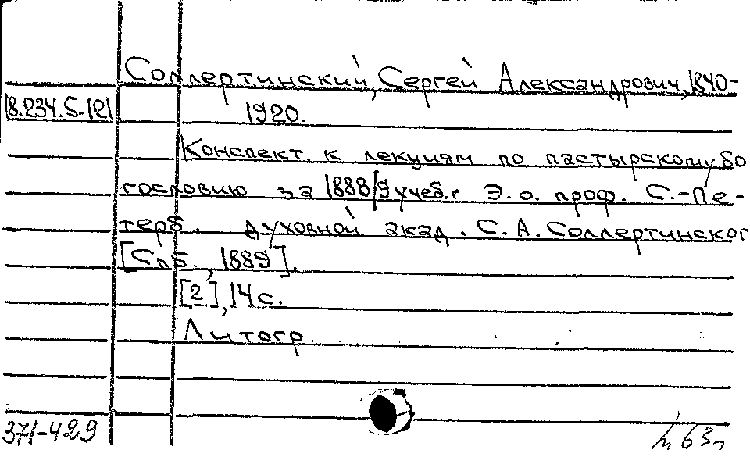 Соллертинский, Сергей Александрович, 1840-
18.234.5.121 1920.
Конспект к лекциям по пастырскому бо
гословию за 1888/9 учеб. г Э. о. проф. С.-Пе-
терб. духовной акад. С. А. Соллертинског
[Спб., 1889].
[2], 14 с.
Литогр
371-429